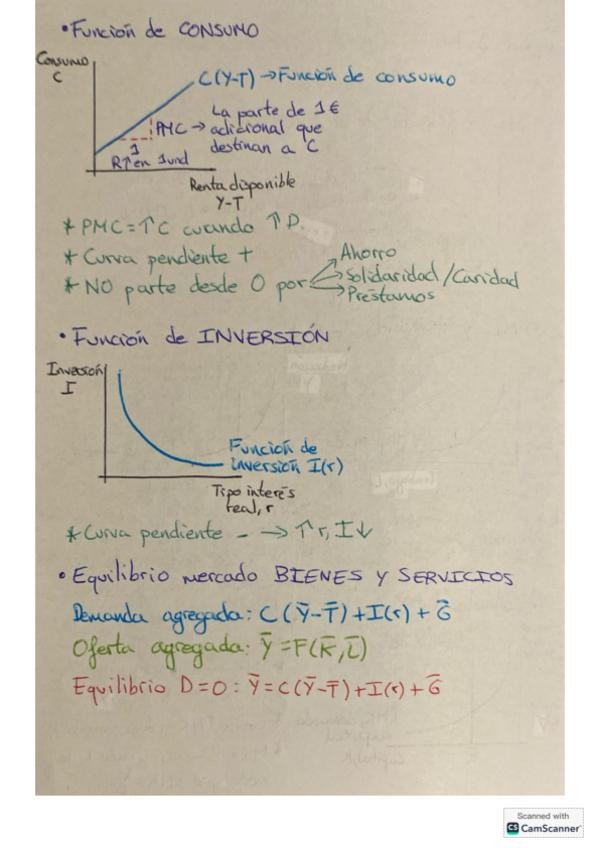 • Función de CONSUMO
Consumo
C
C(Y-T) → Función de consumo
PMC → La parte de 1€
adicional que
destinan a C
1
R↑ en 1und
Renta disponible
Y-T
* PMC = ↑C cuando ↑D.
* Curva pendiente +
* NO parte desde 0 por → Ahorro
→ Solidaridad / Caridad
→ Préstamos
• Función de INVERSIÓN
Inversión
I
Función de
inversión I(r)
Tipo interés
real, r
* Curva pendiente - → ↑r, I↓
• Equilibrio mercado BIENES Y SERVICIOS
Demanda agregada: C(Ȳ-T̄)+I(r)+Ḡ
Oferta agregada: Ȳ=F(K̄,L̄)
Equilibrio D=O: Ȳ=C(Ȳ-T̄)+I(r)+Ḡ
Scanned with
CS CamScanner